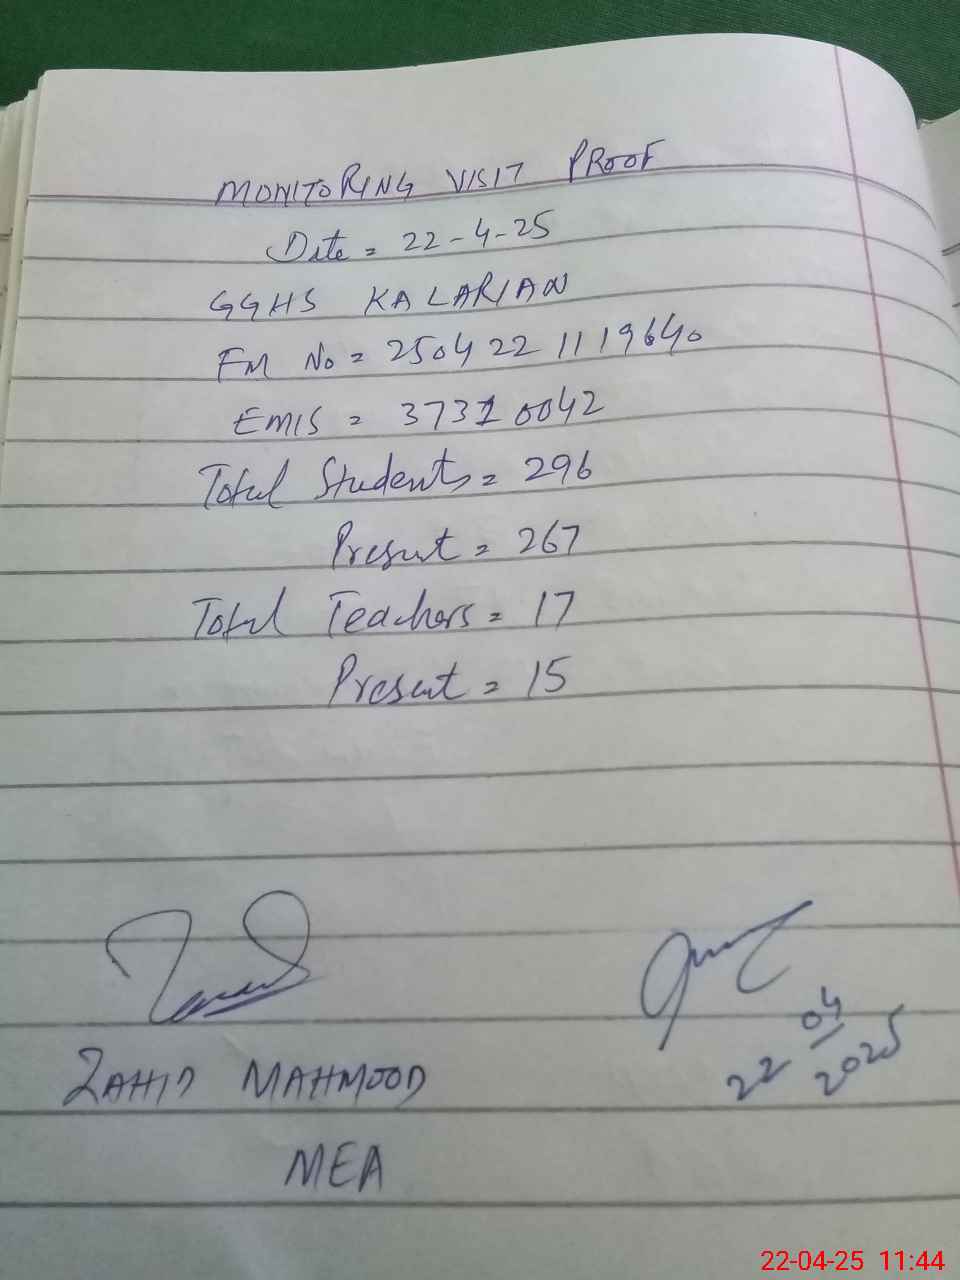 MONITORING VISIT PROOF
Date = 22-4-25
GGHS KALARIAN
FM No = 250422 1119640
EMIS = 37310042
Total Students = 296
Present = 267
Total Teachers = 17
Present = 15
ZAHID MAHMOOD
MEA
22 04 2025
22-04-25 11:44